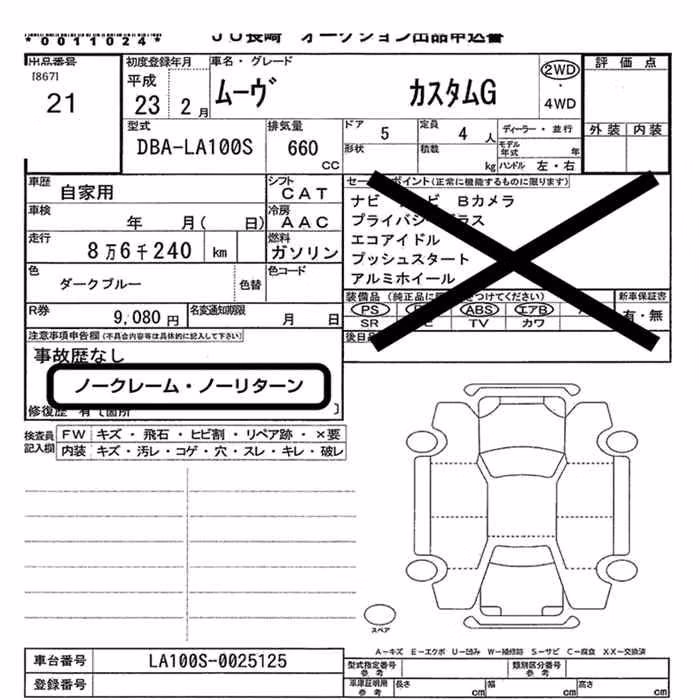 *0011024*
JU長崎 オークション出品申込書
出品番号
[867]
21
初度登録年月
平成
23 2月
車名・グレード
ムーヴ カスタムG
2WD
・
4WD
評価点
外装 内装
型式
DBA-LA100S
排気量
660
CC
ドア
5
定員
4 人
ディーラー・並行
形状
積載
kg
モデル
年式 年
ハンドル 左・右
車歴
自家用
シフト
CAT
車検
年 月( 日)
冷房
AAC
走行
8万6千240 km
燃料
ガソリン
色
ダークブルー
色替
色コード
R券
9,080 円
名変通知期限
月 日
ポイント(正常に機能するものに限ります)
ナビ Bカメラ
プライバシ ラス
エコアイドル
プッシュスタート
アルミホイール
装備品
新車保証書
有・無
PS
ABS
エアB
SR
TV
カワ
後日
注意事項申告欄(不具合内容等は具体的に記入して下さい)
事故歴なし
ノークレーム・ノーリターン
修復歴 有〔箇所 〕
検査員
記入欄
FW キズ・飛石・ヒビ割・リペア跡・×要
内装 キズ・汚レ・コゲ・穴・スレ・キレ・破レ
スペア
A-キズ E-エクボ U-凹み W-補修跡 S-サビ C-腐食 XX-交換済
車台番号
LA100S-0025125
登録番号
型式指定番号
参考
類別区分番号
参考
車庫証明用
参考
長さ cm
幅 cm
高さ cm